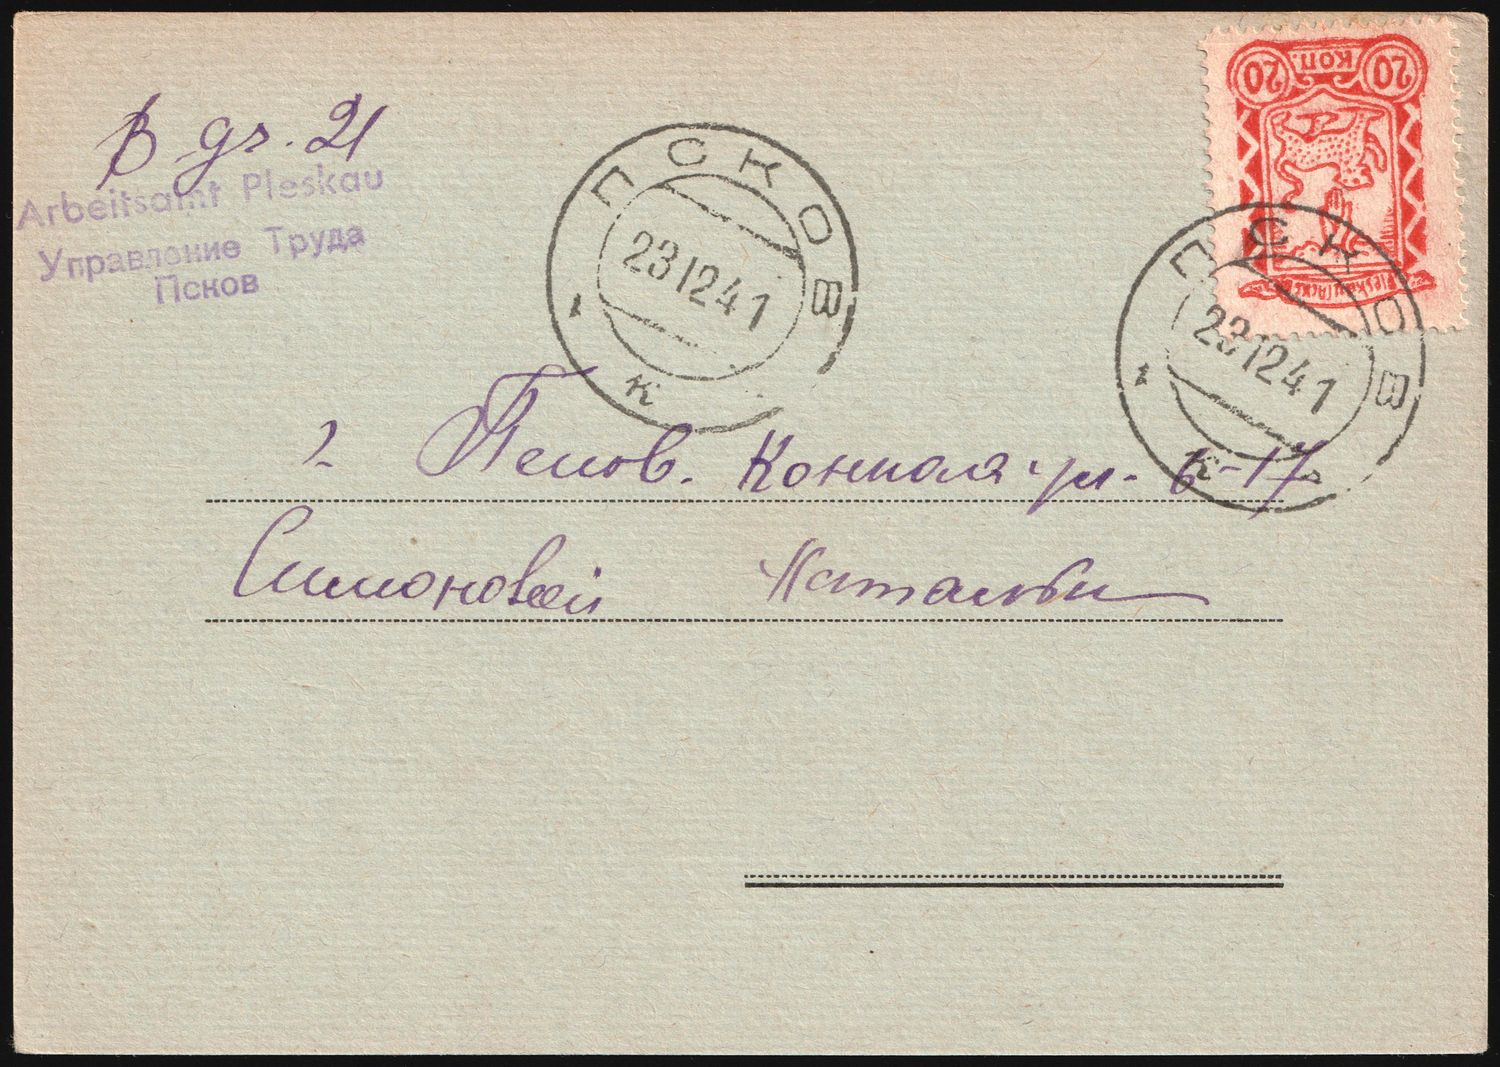 В gr. 21
Arbeitsamt Pleskau
Управление Труда
Псков
ПСКОВ
23 12 41
1 к
20 КОП. 20
ПСКОВ
23 12 41
1 к
г. Псков. Конная ул. 6-17
Симоновой Натальи